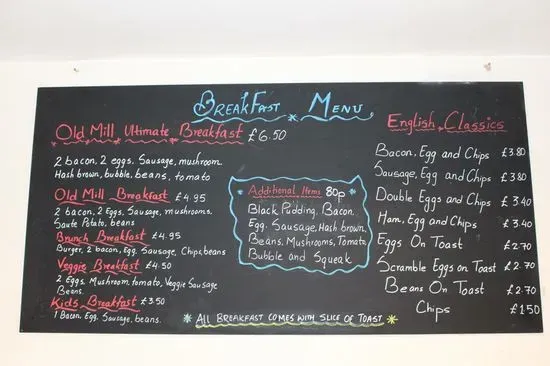 BreakFast Menu
Old Mill Ultimate Breakfast £6.50
2 bacon, 2 eggs. Sausage, mushroom.
Hash brown, bubble, beans, tomato
Old Mill Breakfast £4.95
2 bacon, 2 Eggs, Sausage, mushrooms.
Saute Potato, beans
Brunch Breakfast £4.95
Burger, 2 bacon, Egg, Sausage, Chips, beans
Veggie Breakfast £4.50
2 Eggs, Mushroom, tomato, Veggie Sausage
Beans.
Kids Breakfast £3.50
1 Bacon, Egg, Sausage, beans.
Additional Items 80p
Black Pudding, Bacon,
Egg, Sausage, Hash brown,
Beans, Mushrooms, Tomato,
Bubble and Squeak
English Classics
Bacon, Egg and Chips £3.80
Sausage, Egg and Chips £3.80
Double Eggs and Chips £3.40
Ham, Egg and Chips £3.40
Eggs On Toast £2.70
Scramble Eggs on Toast £2.70
Beans On Toast £2.70
Chips £1.50
* ALL BREAKFAST COMES WITH SLICE OF TOAST *